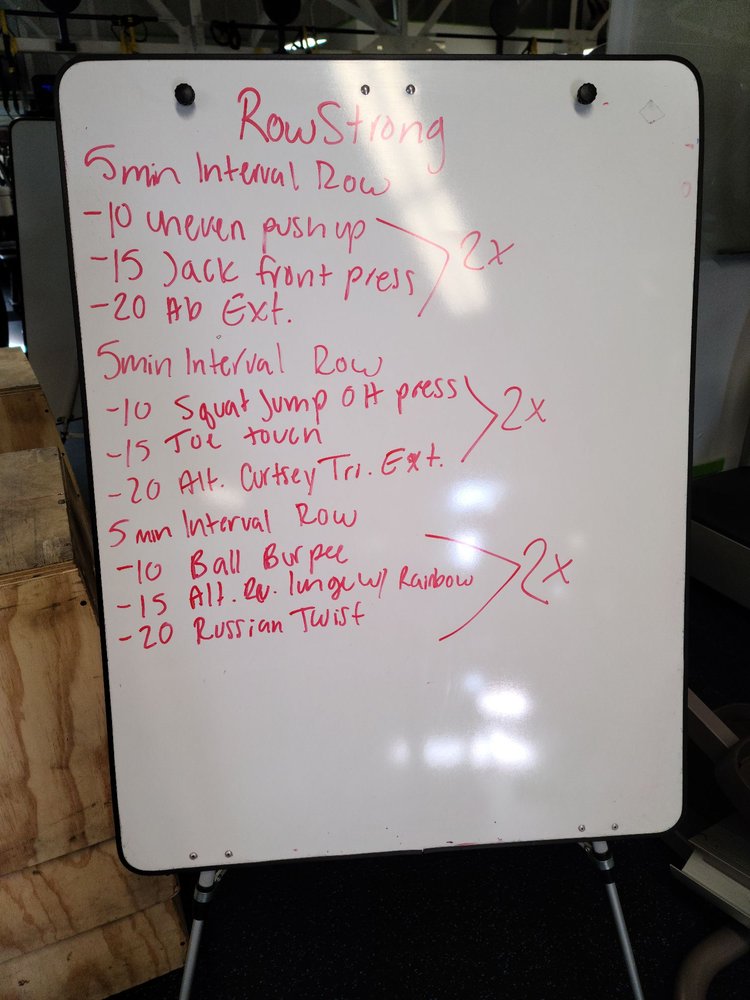 RowStrong
5min Interval Row
-10 uneven push up
-15 Jack front press
-20 Ab Ext.
2x
5min Interval Row
-10 Squat Jump OH press
-15 Toe touch
-20 Alt. Curtsey Tri. Ext.
2x
5 min Interval Row
-10 Ball Burpee
-15 Alt. Rv. lunge w/ Rainbow
-20 Russian Twist
2x